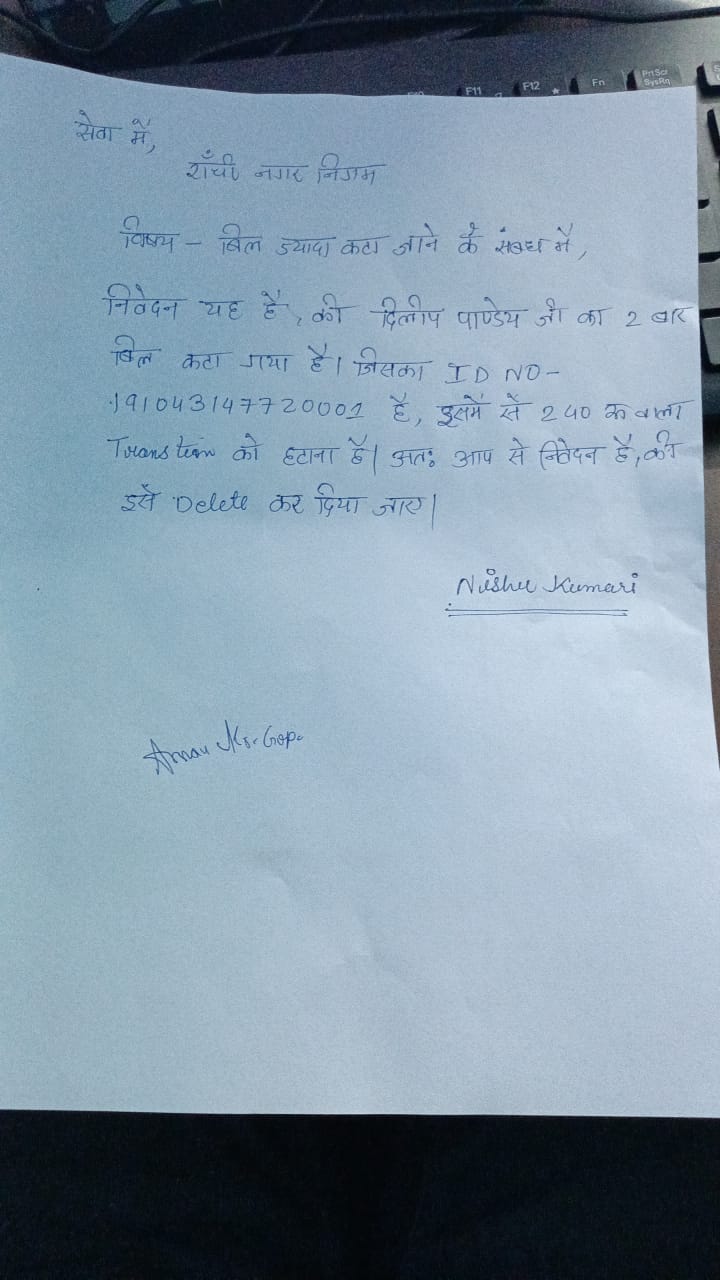 F11 F12 Fn PrtScr
SysRq
सेवा में,
राँची नगर निगम
विषय – बिल ज्यादा कटा जाने के संबध में,
निवेदन यह है, की दिलीप पाण्डेय जी का 2 बार
बिल कटा गया है। जिसका ID NO-
191043147720001 है, इसमें से 240 रू वाला
Transtion को हटाना है। अतः आप से निवेदन है, की
इसे Delete कर दिया जाए।
Nishu Kumari
Aman Kr. Gope